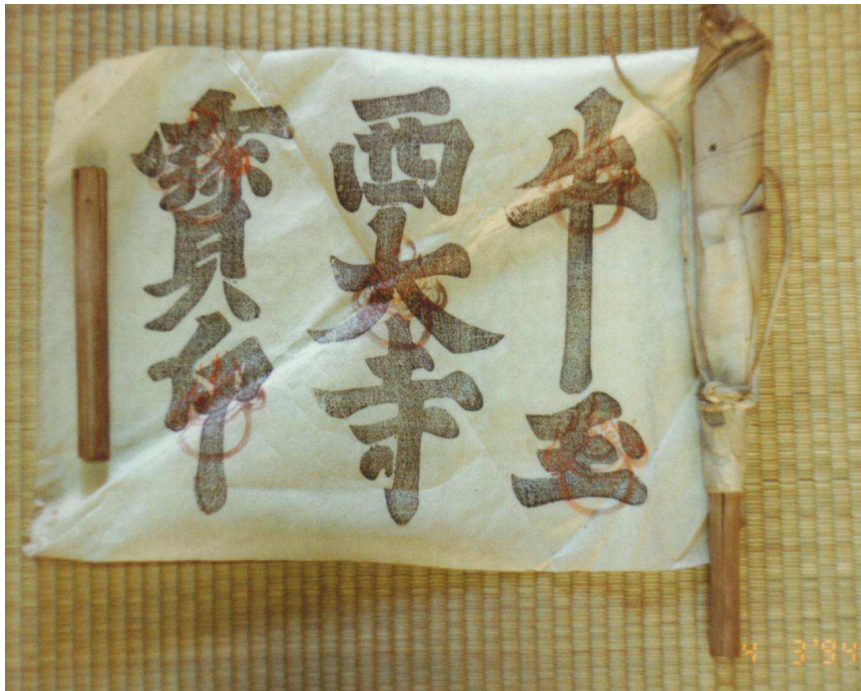 牛玉
西大寺
寶印
4 3'94